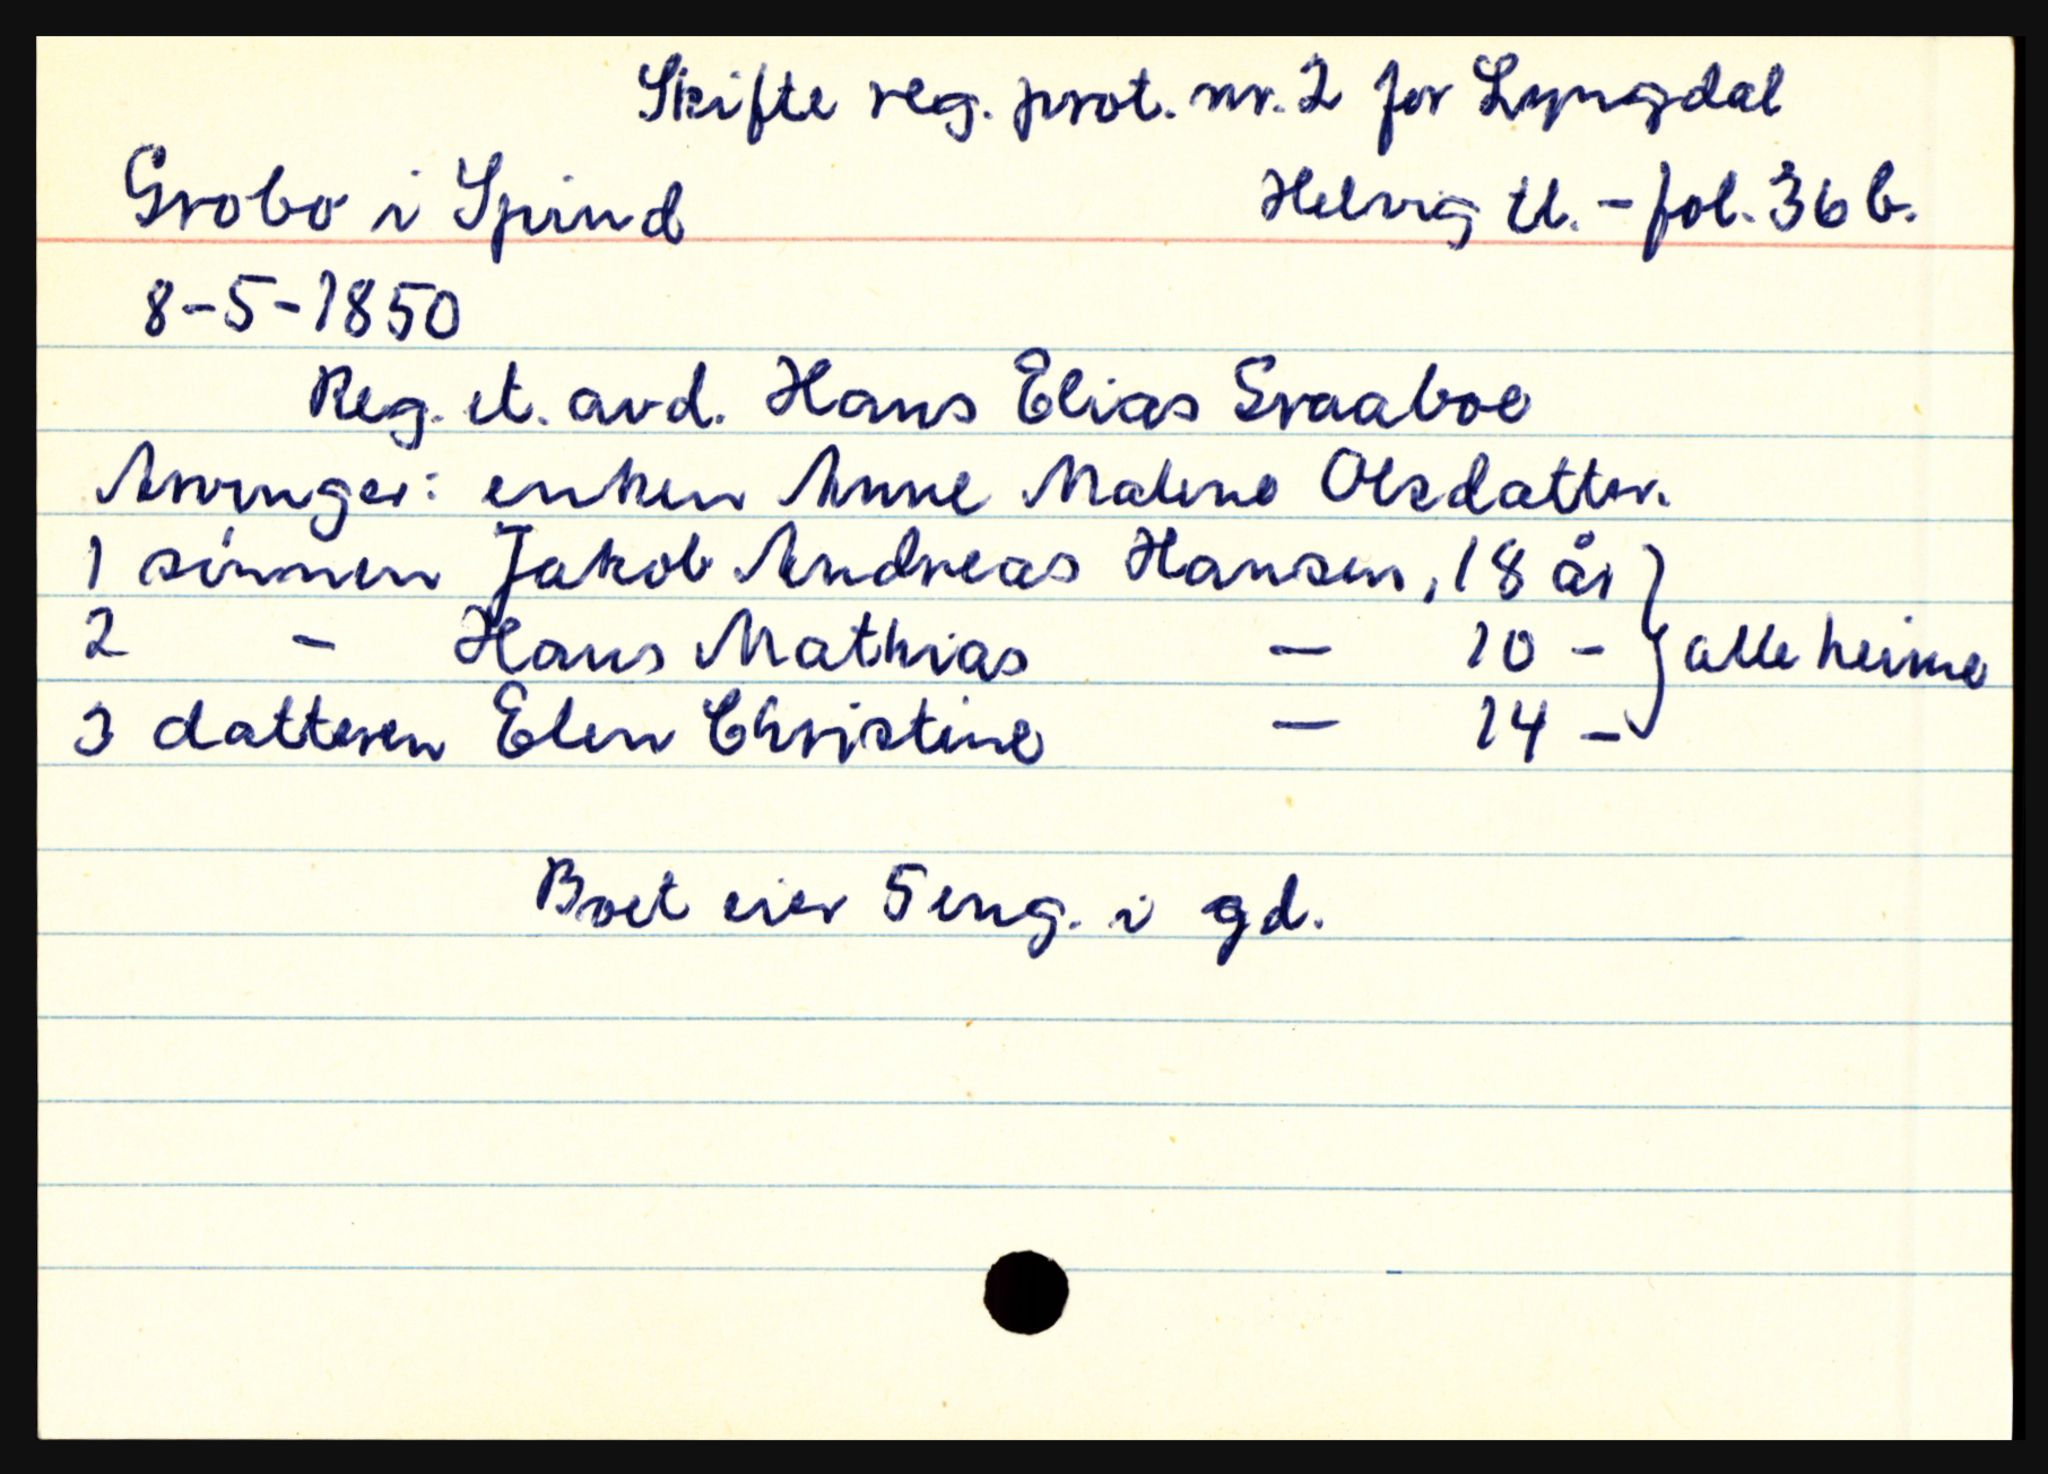 Skifte reg. prot. nr. 2 for Lyngdal
Grobo i Spind
Helvig tl. - fol. 36 b.
8-5-1850
Reg. et. avd. Hans Elias Graaboe
Arvinger: enken Anne Malene Olsdatter.
1 sønnen Jakob Andreas Hansen, 18 år } alle heime
2 - Hans Mathias - 10 -
3 datteren Elen Christine - 14 -
Boet eier 5 eng. i gd.